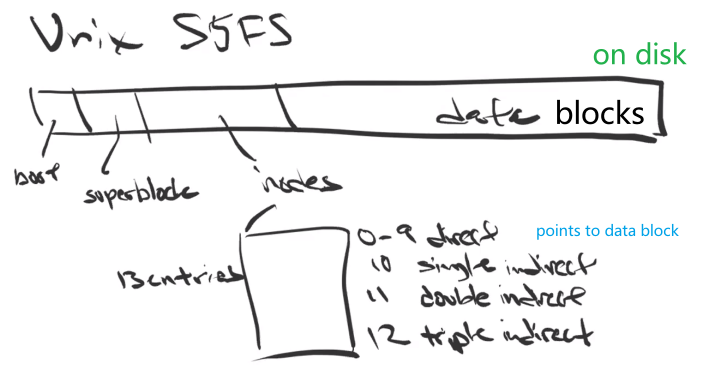 Unix S5FS
on disk
data blocks
boot
superblock
inodes
0-9 direct points to data block
13 entries
10 single indirect
11 double indirect
12 triple indirect